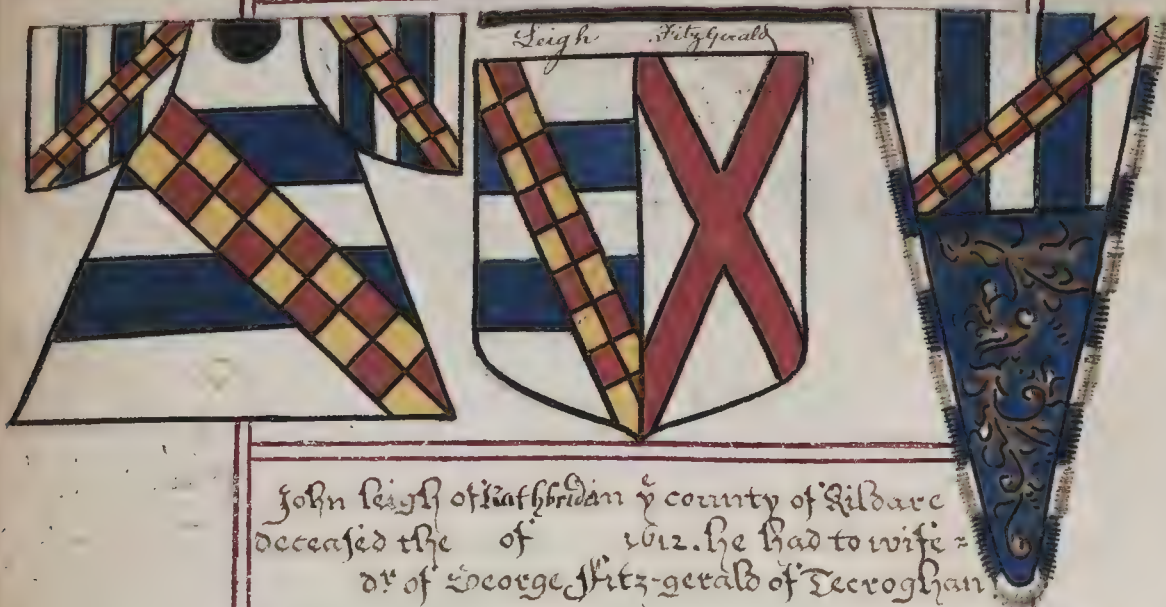 Leigh FitzGerald
John leigh of Rathbrid in yᵉ county of Kildare
deceased the of 1612. he had to wife =
dʳ. of George Fitz-gerald of Tecroghan